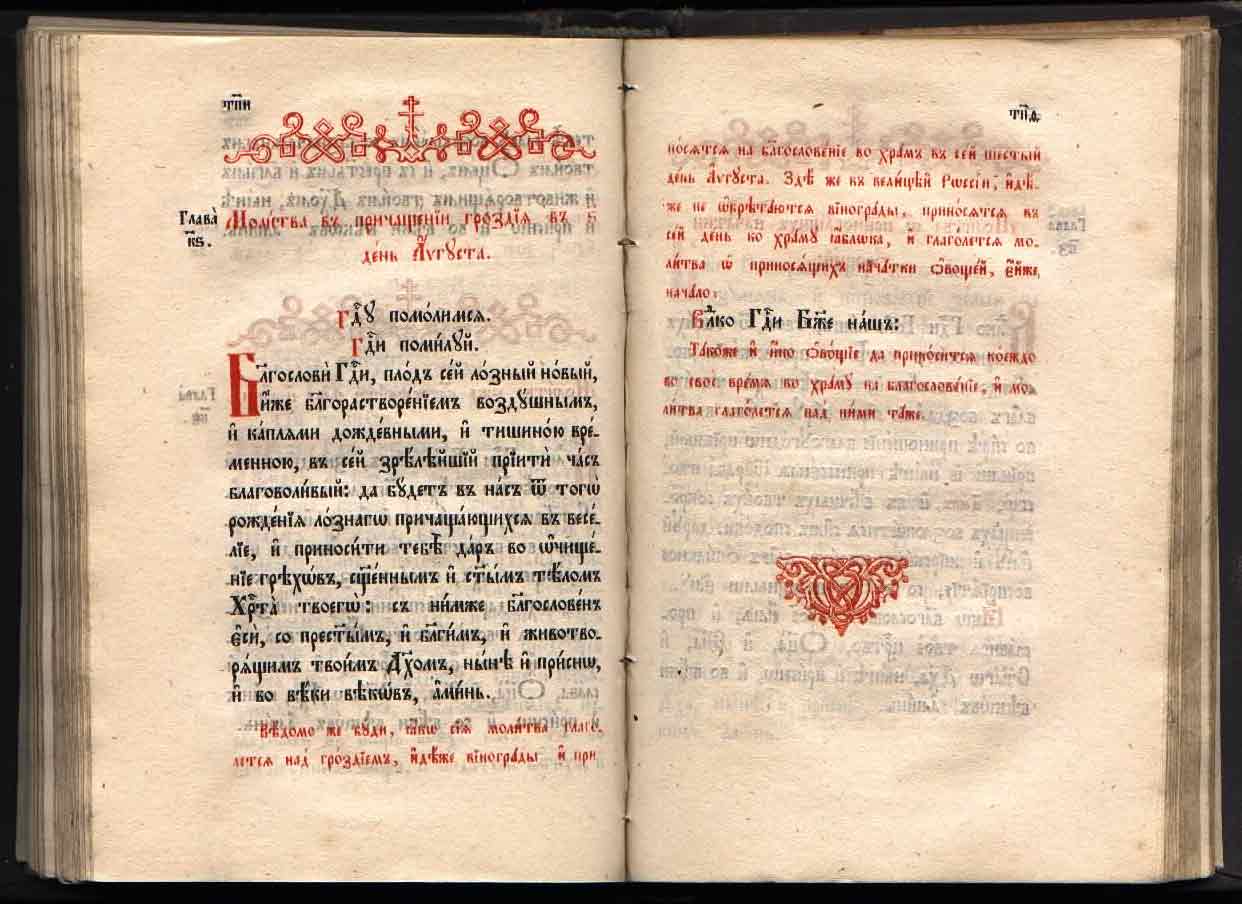 тп҃и
Глава̀ к҃ѕ.
Моли́тва въ причаще́нїи гро́здїѧ, въ ѕ҃
де́нь А҆́ѵгꙋста.
Гдⷭ҇ꙋ помо́лимсѧ.
Гдⷭ҇и поми́лꙋй.
Бл҃гословѝ Гдⷭ҇и, пло́дъ се́й ло́зный но́вый,
и҆́же бл҃горастворе́нїемъ возд́ꙋшнымъ,
и҆ ка́плѧми дожде́вными, и҆ тишино́ю вре-
менно́ю, въ се́й зрѣ́лѣйшїй прїитѝ ча́съ
благоволи́вый: да бꙋ́детъ въ на́съ ѿ тогѡ̀
рожде́нїѧ ло́знагѡ причаща́ющихсѧ въ весе́-
лїе, и҆ приноси́ти тебѣ̀ да́ръ во ѡ҆чище́-
нїе грѣхѡ́въ, сщ҃е́ннымъ и҆ ст҃ы́мъ тѣ́ломъ
Хрⷭ҇та̀ твоегѡ̀: съ ни́мже бл҃гослове́нъ
є҆сѝ, со прест҃ы́мъ, и҆ бл҃ги́мъ, и҆ животво-
рѧ́щимъ твои́мъ Дх҃омъ, ны́нѣ и҆ при́снѡ,
и҆ во вѣ́ки вѣкѡ́въ, а҆ми́нь.
Вѣ́домо же бꙋ́ди, ꙗ҆́кѡ сїѧ̀ моли́тва глаго́-
летсѧ над̾ гро́здїемъ, и҆дѣ́же вїногра́ды и҆ при-
тп҃ѳ
но́сѧтсѧ на бл҃гослове́нїе во хра́мъ въ се́й шесты́й
де́нь А҆́ѵгꙋста. Здѣ́ же въ вели́цѣй Рѡссі́и, и҆дѣ́-
же не ѡ҆брѣта́ютсѧ вїногра́ды, прино́сѧтсѧ въ
се́й де́нь ко хра́мꙋ ꙗ҆́блѡка, и҆ глаго́летсѧ мо-
ли́тва ѡ҆ приносѧ́щихъ нача́тки ѻ҆во́щей, є҆ѧ́же,
нача́ло:
Влⷣко Гдⷭ҇и Бж҃е на́шъ:
Та́коже и҆ и҆́но ѻ҆во́щїе да прино́ситсѧ ко́еждо
во своѐ вре́мѧ ко хра́мꙋ на благослове́нїе, и҆ мо-
ли́тва глаго́летсѧ над̾ ни́ми та́же.